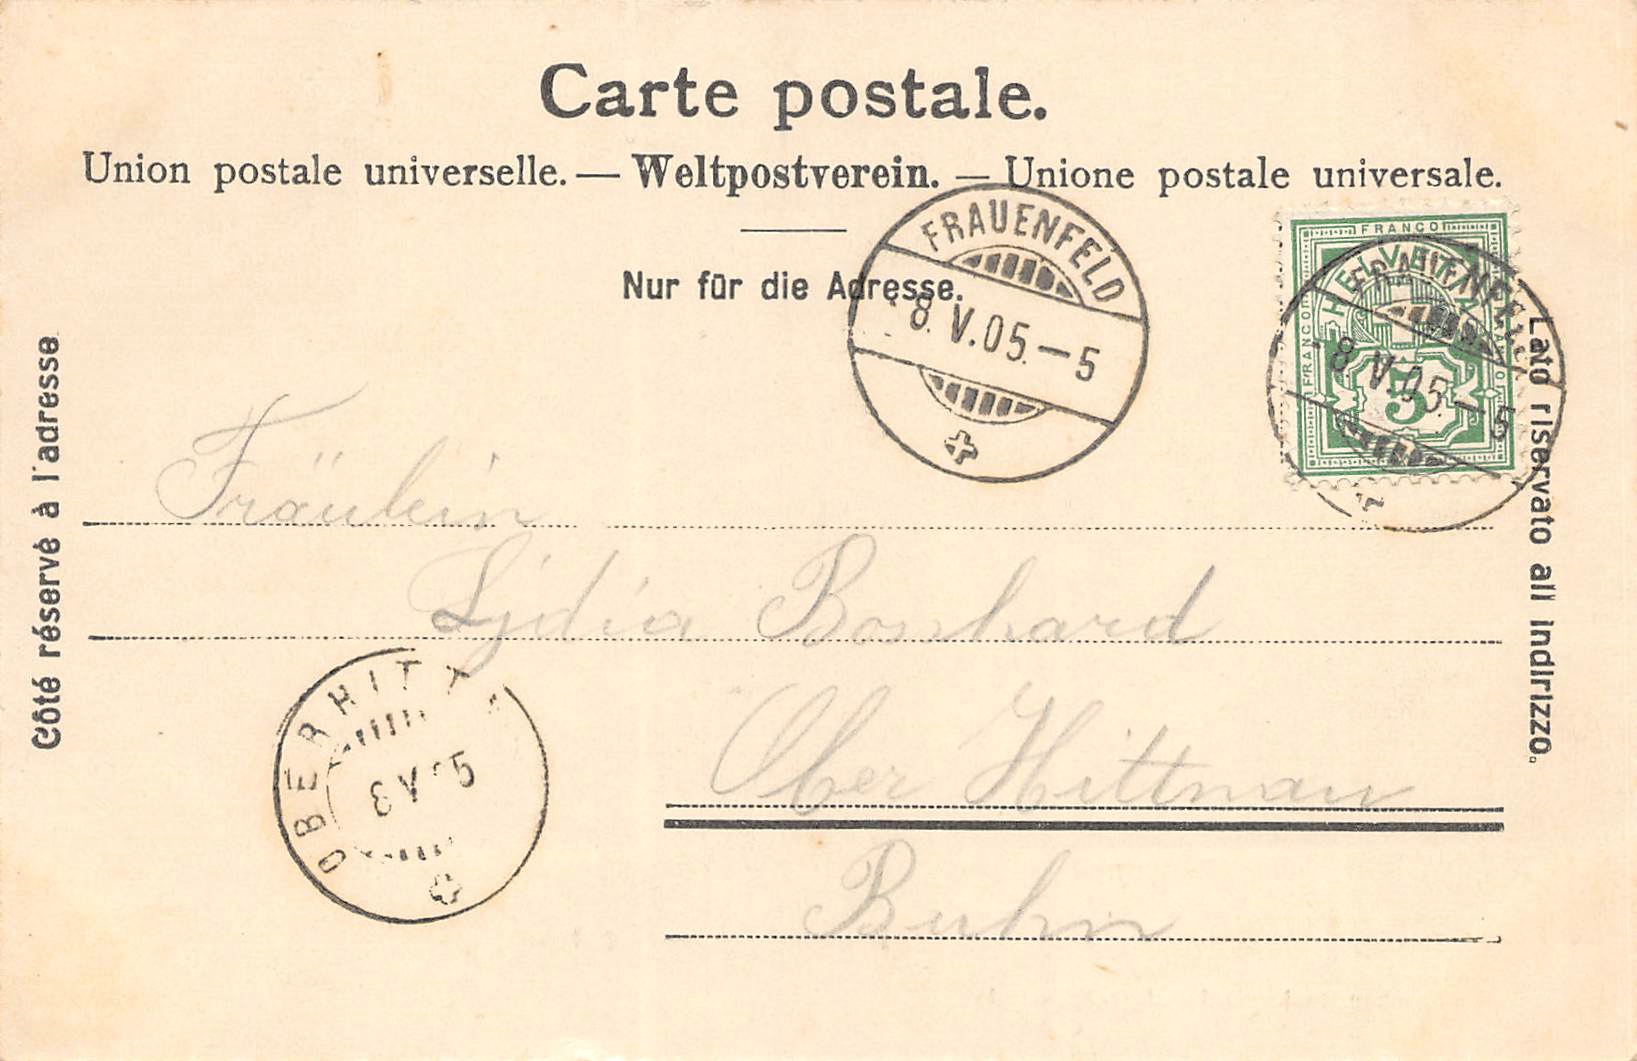 Carte postale.
Union postale universelle. — Weltpostverein. — Unione postale universale.
Nur für die Adresse.
Côté réservé à l'adresse
Lato riservato all indirizzo.
FRAUENFELD
8. V. 05. — 5
FRANCO
HELVETIA
FRANCO
5
FRAUENFELD
8. V. 05. — 5
Fräulein
Lydia Bosshard
Ober Hittnau
OBERHITT
8 V 05